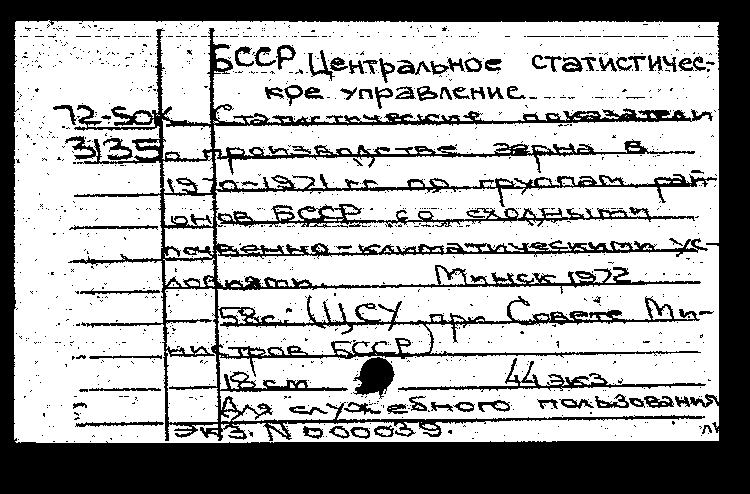 БССР. Центральное статистичес-
кое управление.
72-50к Статистические показатели
3135 о производстве зерна в
1970-1971 гг по группам рай-
онов БССР со сходными
почвенно-климатическими ус-
ловиями. Минск 1972
58с. (ЦСУ при Совете Ми-
нистров БССР)
18 см 44 экз.
Для служебного пользования
экз. N 000039.